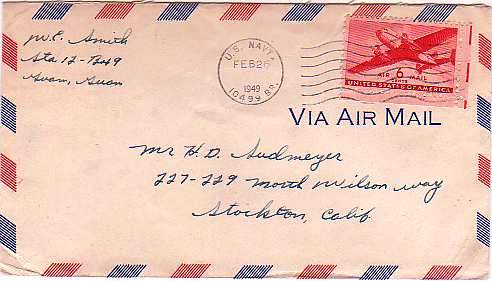 W.E. Smith
Sta 12-1349
Guam, Guam
U.S. NAVY
FEB 26
1949
10499 BR.
AIR 6 MAIL
CENTS
UNITED STATES OF AMERICA
VIA AIR MAIL
Mr H.D. Sudmeyer
227-229 North Wilson Way
Stockton, Calif.